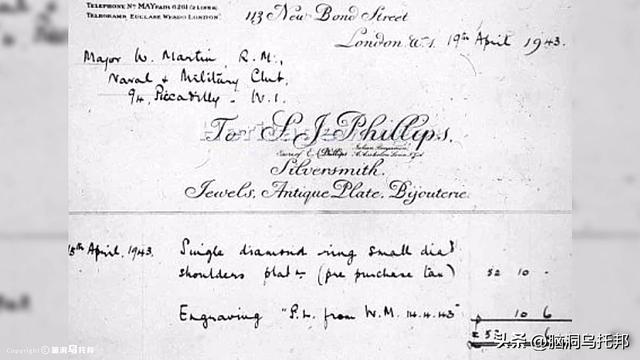 TELEPHONE No MAYFAIR 6261 (2 LINES)
TELEGRAMS, EUCLASE WESDO LONDON
113 New Bond Street
London W.1. 19th April 1943.
Major W. Martin, R.M.,
Naval & Military Club,
94, Piccadilly - W.1.
To S. J. Phillips.
Silversmith.
Jewels, Antique Plate, Bijouterie.
15th April, 1943. Single diamond ring small diad
shoulders platm (pre purchase tax) 52 10 -
Engraving "P.L. from W.M. 14.4.43" 10 6
£ 53 - 6
Copyright © 脑洞乌托邦
头条 @脑洞乌托邦